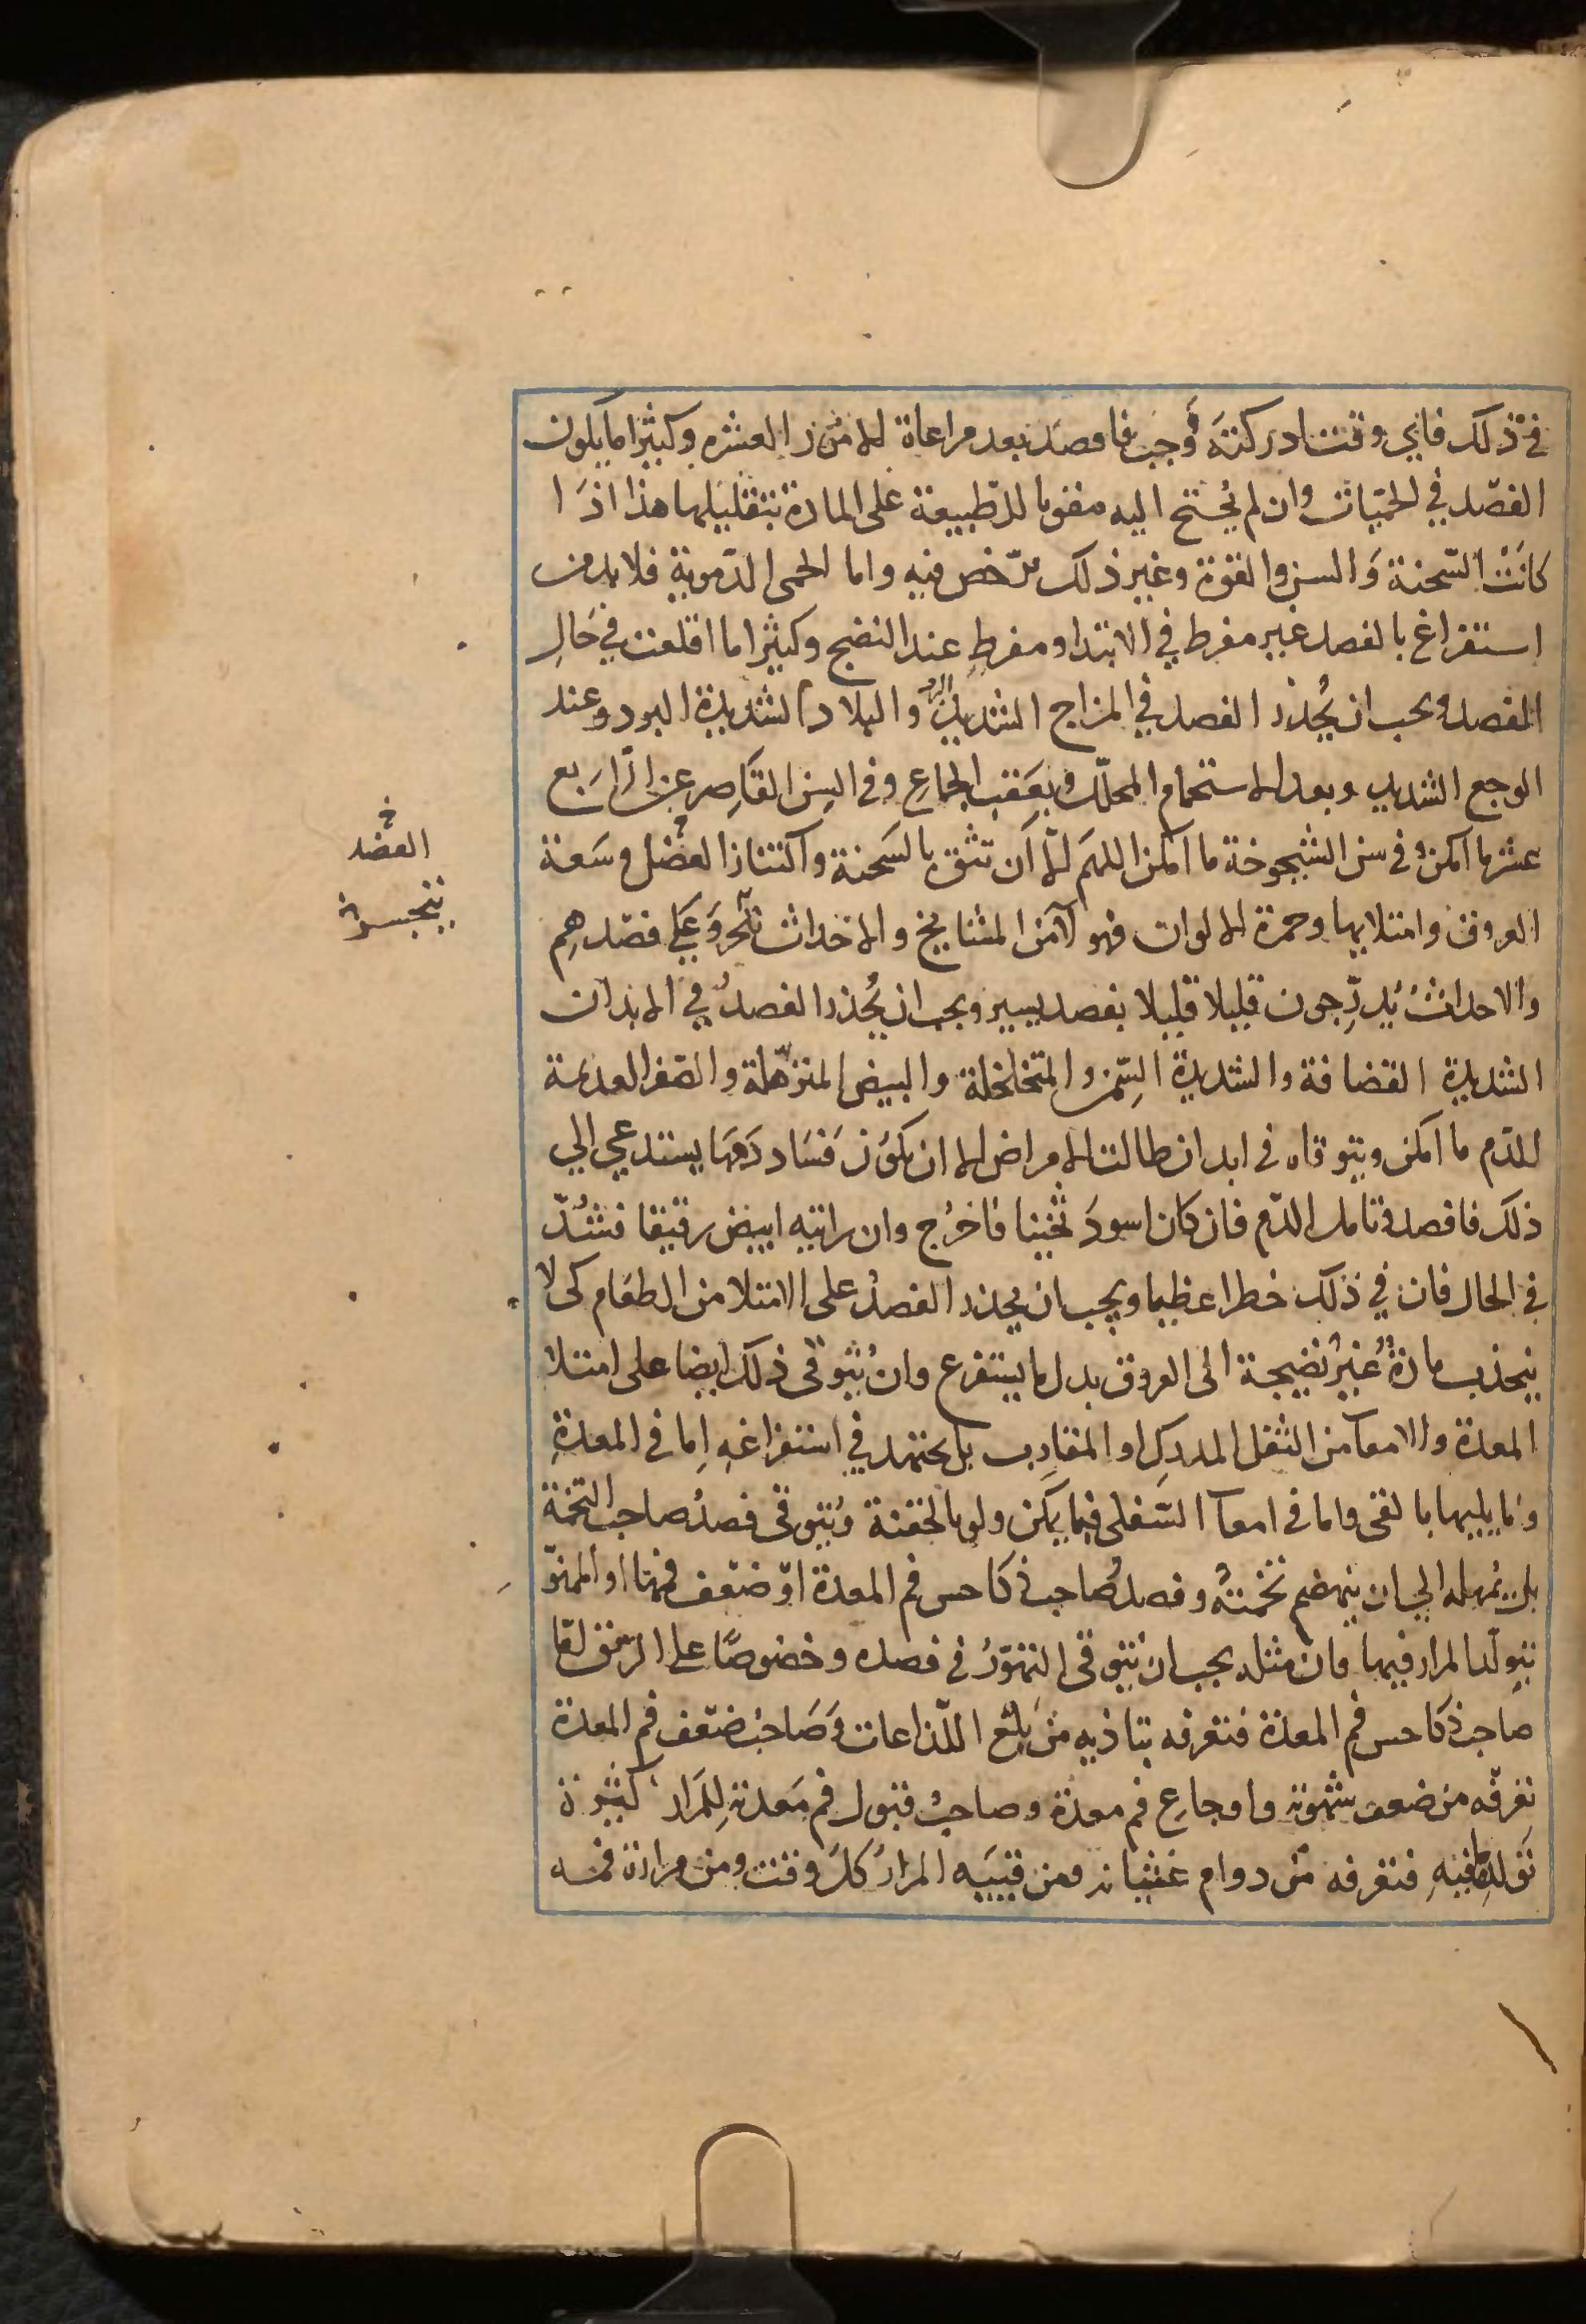 في ذلك فاي وقت ادركته وجب فافصد بعد مراعاة الامور العشره وكثيرا ما يكون
الفصد في الحميات وان لم يحتج اليه مقويا للطبيعة على المادة بتقليلها هذا اذا
كانت السحنة والسن والقوة وغير ذلك مرخص فيه واما الحمى الدموية فلا بد من
استفراغ بالفصد غير مفرط في الابتدا ومفرط عند النضج وكثيرا ما اقلعت في حال
الفصد ويجب ان يحذر الفصد في المزاج الشديد البرد والبلاد الشديدة البرد وعند
الوجع الشديد وبعد الاستحمام المحلل وبعقب الجماع وفي السن القاصر عن الرابع
عشر ما امكن وفي سن الشيخوخة ما امكن اللهم الا ان تثق بالسحنة واكتناز العضل وسعة
العروق وامتلايها وحمرة الالوان فهولا من المشايخ والاحداث نتجرو على فصدهم
والاحداث يدرجون قليلا قليلا بفصد يسير ويجب ان يحذر الفصد في الابدان
الشديدة القضافة والشديدة السمن والمتخلخلة والبيض المترهلة والصفر العديمة
الدم ما امكن ويتوقاه في ابدان طالت الامراض الا ان يكون فساد دمها يستدعي الي
ذلك فافصد وتامل الدم فان كان اسود ثخينا فاخرج وان رايته ابيض رقيقا فشد
في الحال فان في ذلك خطرا عظيما ويجب ان يحذر الفصد على الامتلا من الطعام كي لا
ينجذب مادة غير نضيجة الى العروق بدل ما يستفرغ وان يتوقى ذلك ايضا على امتلا
المعدة والامعا من الثفل المدرك او المقارب بل يجتهد في استفراغه اما في المعدة
وما يليها بالقى واما في امعا السفلى فبما يمكن ولو بالحقنة ويتوقى فصد صاحب التخمة
بل يمهله الي ان ينهضم تخمته وفصد صاحب ذكا حس فم المعدة او ضعف فمها او الممنو
بتولد المرار فيها فان مثله يجب ان يتوقى التهور في فصده وخصوصا على الريق اما
صاحب ذكا حس فم المعدة فتعرفه بتاذيه من بلع اللذاعات وصاحب ضعف فم المعدة
تعرفه من ضعف شهوته واوجاع فم معدة وصاحب قبول فم معدته للمرار كثيرة
تولدها فيه فتعرفه من دوام غثيانه ومن قييه المرار كل وقت ومن مرارة فمه
خ
العضد
يتجسر